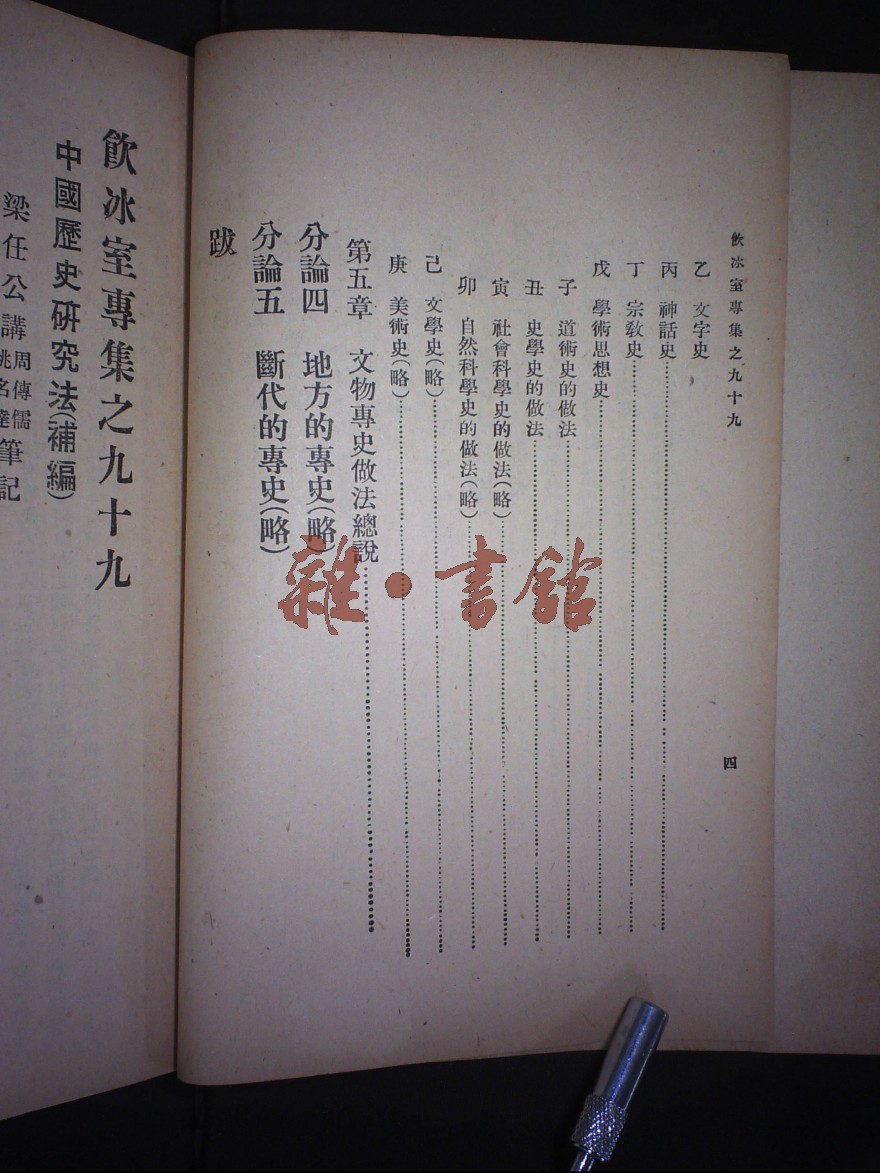 飲冰室專集之九十九
四
乙 文字史
丙 神話史
丁 宗教史
戊 學術思想史
子 道術史的做法
丑 史學史的做法
寅 社會科學史的做法(略)
卯 自然科學史的做法(略)
己 文學史(略)
庚 美術史(略)
第五章 文物專史做法總說
分論四 地方的專史(略)
分論五 斷代的專史(略)
跋
飲冰室專集之九十九
中國歷史研究法(補編)
梁任公講 周傳儒 姚名達 筆記
雜·書館